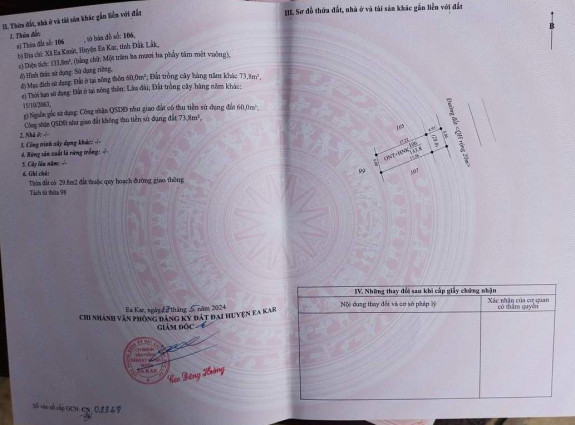 II. Thửa đất, nhà ở và tài sản khác gắn liền với đất
1. Thửa đất:
a) Thửa đất số: 106 , tờ bản đồ số: 106,
b) Địa chỉ: Xã Ea Kmút, Huyện Ea Kar, tỉnh Đắk Lắk,
c) Diện tích: 133,8m², (bằng chữ: Một trăm ba mươi ba phẩy tám mét vuông),
d) Hình thức sử dụng: Sử dụng riêng,
đ) Mục đích sử dụng: Đất ở tại nông thôn 60,0m²; Đất trồng cây hàng năm khác 73,8m²,
e) Thời hạn sử dụng: Đất ở tại nông thôn: Lâu dài; Đất trồng cây hàng năm khác:
15/10/2063,
g) Nguồn gốc sử dụng: Công nhận QSDĐ như giao đất có thu tiền sử dụng đất 60,0m²;
Công nhận QSDĐ như giao đất không thu tiền sử dụng đất 73,8m²,
2. Nhà ở: -/-
3. Công trình xây dựng khác: -/-
4. Rừng sản xuất là rừng trồng: -/-
5. Cây lâu năm: -/-
6. Ghi chú:
Thửa đất có 29.8m2 đất thuộc quy hoạch đường giao thông
Tách từ thửa 98
Ea Kar, ngày tháng 5 năm 2024
CHI NHÁNH VĂN PHÒNG ĐĂNG KÝ ĐẤT ĐAI HUYỆN EA KAR
GIÁM ĐỐC
EA KAR
Cao Đăng Hoàng
Số vào sổ cấp GCN: CN
III. Sơ đồ thửa đất, nhà ở và tài sản khác gắn liền với đất
B
Đường đất - CQH rộng 20m
105
99
ONT+HNK 106
133.8
107
IV. Những thay đổi sau khi cấp giấy chứng nhận
Nội dung thay đổi và cơ sở pháp lý
Xác nhận của cơ quan
có thẩm quyền